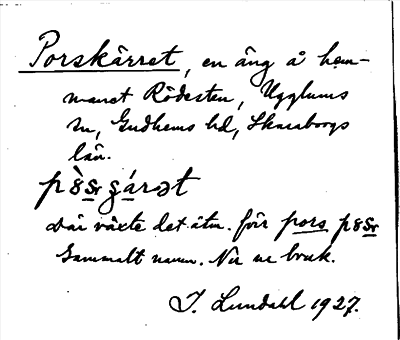 Porskärret, en äng å hem-
manet Rödesten, Ugglums
sn, Gudhems hd, Skaraborgs
län.
Där växte det åtm. förr pors
Gammalt namn. Nu ur bruk.
I. Lundahl 1927.